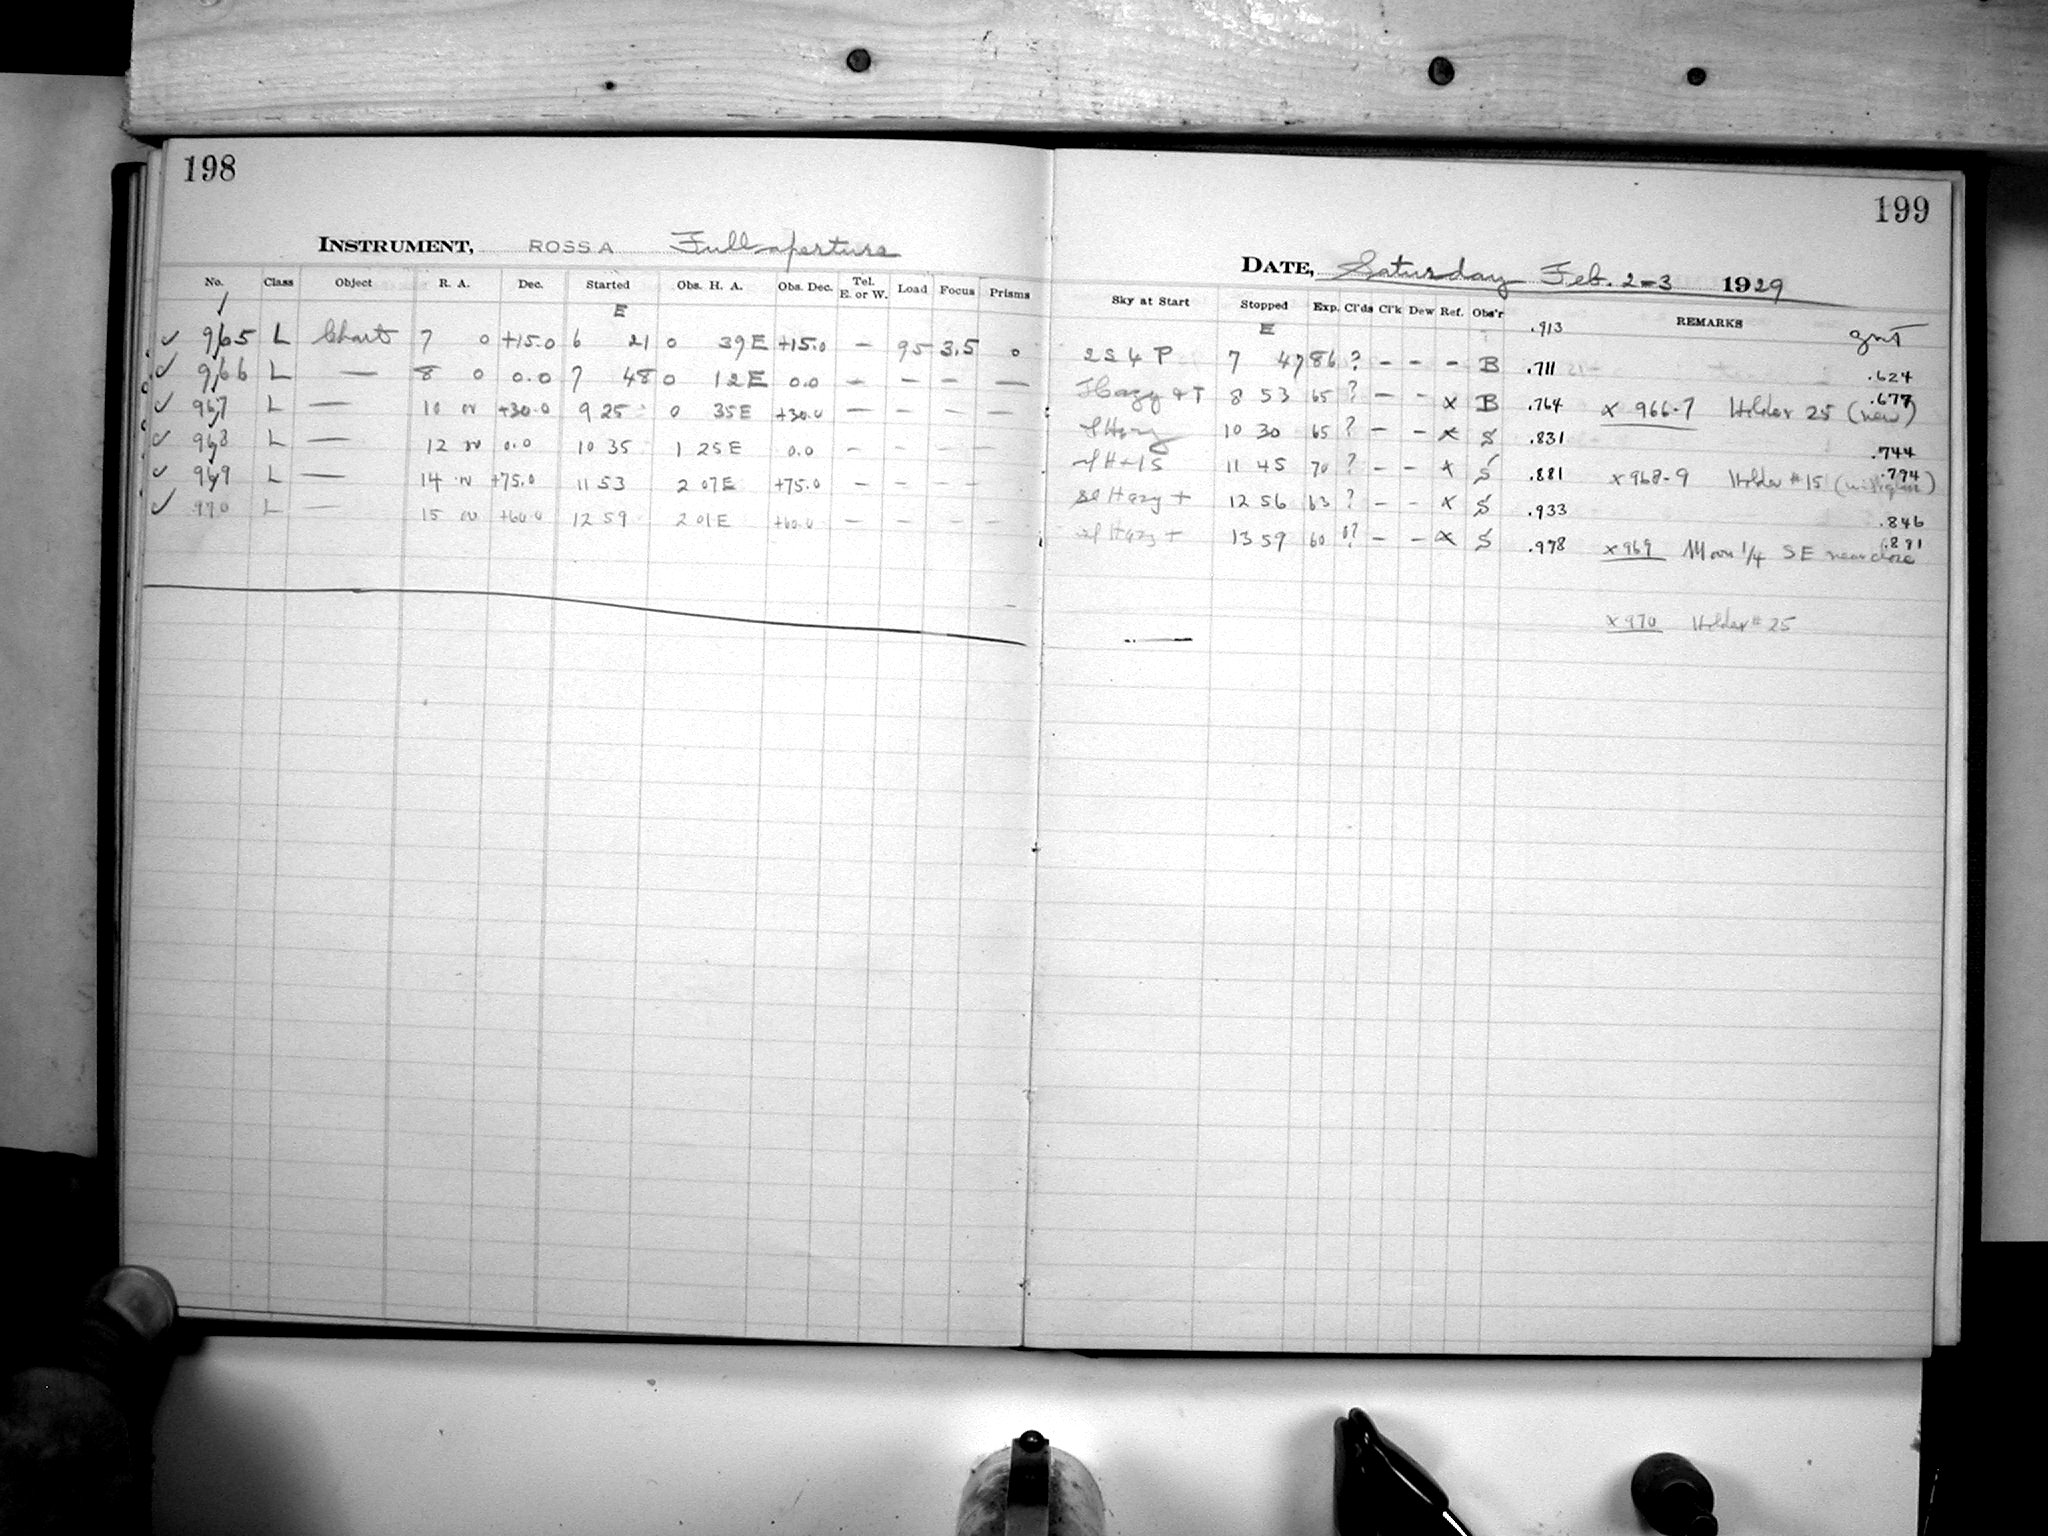 198
INSTRUMENT, ROSS A Full aperture
No. Class Object R. A. Dec. Started Obs. H. A. Obs. Dec. Tel. E. or W. Load Focus Prisms
E
965 L Chart 7 0 +15.0 6 21 0 39 E +15.0 — 95 3.5 0
966 L — 8 0 0.0 7 48 0 12 E 0.0 — — — —
967 L — 10 +30.0 9 25 0 35 E +30.0 — — — —
968 L — 12 0.0 10 35 1 25 E 0.0 — — — —
969 L — 14 +75.0 11 53 2 07 E +75.0 — — — —
970 L — 15 +60.0 12 59 2 01 E +60.0 — — — —
199
DATE, Saturday Feb. 2-3 1929
Sky at Start Stopped Exp. Cl'ds Cl'k Dew Ref. Obs'r REMARKS
E .913 gmT
2 S 4 P 7 47 86 ? — — — B .711 .624
Hazy + T 8 53 65 ? — — x B .764 .677
x 966-7 Holder 25 (new)
10 30 65 ? — — x S .831 .744
11 45 70 ? — — x S .881 .794
x 968-9 Holder # 15
Hazy + 12 56 63 ? — — x S .933 .846
Hazy + 13 59 60 ? — — x S .978 .891
x 969 Moon 1/4 SE near close
x 970 Holder # 25